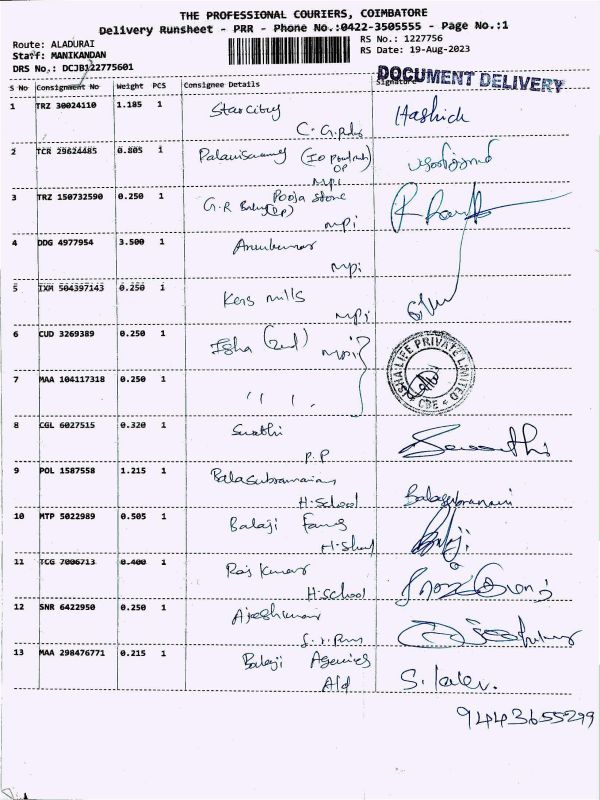 THE PROFESSIONAL COURIERS, COIMBATORE
Delivery Runsheet - PRR - Phone No.:0422-3505555 - Page No.:1
Route: ALADURAI
Staff: MANIKANDAN
DRS No.: DCJB122775601
RS No.: 1227756
RS Date: 19-Aug-2023
DOCUMENT DELIVERY
S No Consignment No Weight PCS Consignee Details Signature
1 TRZ 30024110 1.185 1 Starcity Hashick
2 TCR 29624485 0.805 1
OP
MPi
3 TRZ 150732590 0.250 1 Pooja Stone
G.R
MPi
4 DDG 4977954 3.500 1 Arunkumar
MPi
5 IXM 504397143 0.250 1 Kens mills
MPi
6 CUD 3269389 0.250 1 Isha MPi
ISHA LIFE PRIVATE LIMITED
CBE
7 MAA 104117318 0.250 1 " "
8 CGL 6027515 0.320 1 Swathi
P.P
9 POL 1587558 1.215 1 Balasubramanian
H.School
10 MTP 5022989 0.505 1 Balaji Balaji
11 TCG 7006713 0.400 1 Raj Kumar
H.School
12 SNR 6422950 0.250 1 Ajeshkumar
13 MAA 298476771 0.215 1 Balaji Agencies
Ald
9443655299